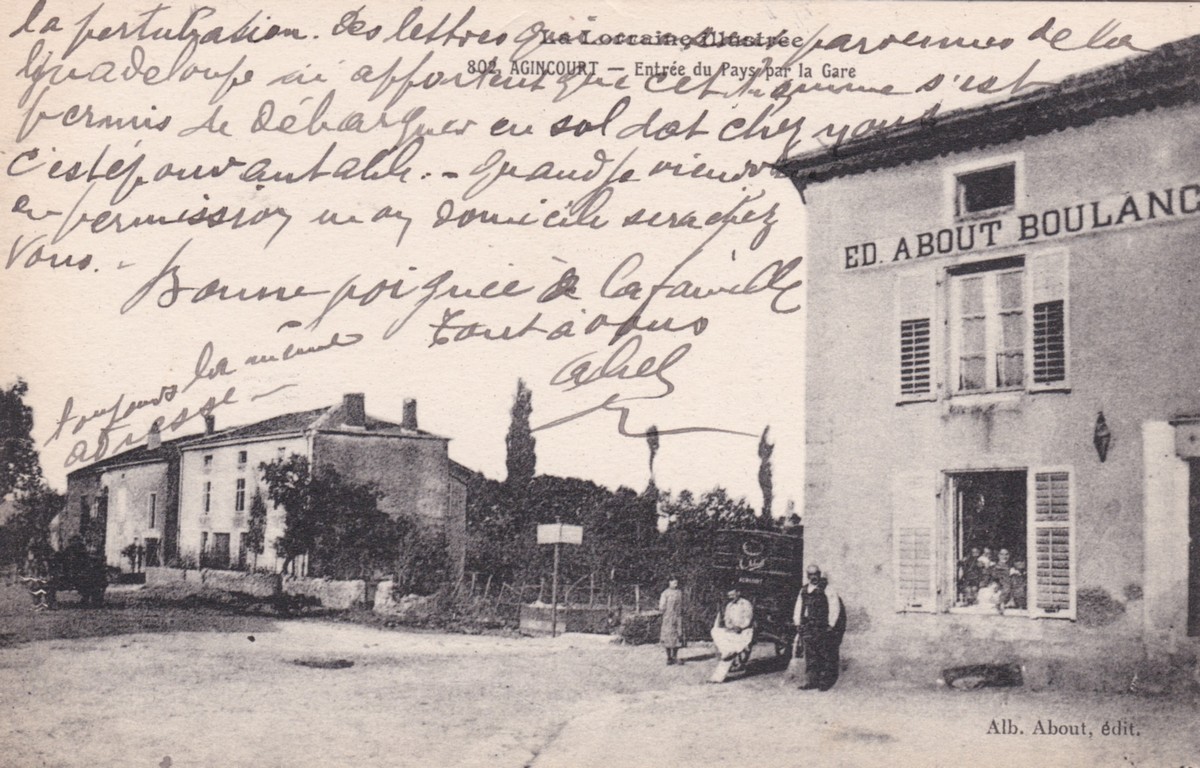 la perturbation. Des lettres parvenues de la
La Lorraine Illustrée
Guadeloupe m'apportent que cet homme s'est
802. AGINCOURT — Entrée du Pays par la Gare
permis de débarquer en soldat chez vous
c'est épouvantable. - Quand je viendrai
en permission mon domicile sera chez
vous. -
Bonne poignée à la famille
Tout à vous
toujours la même
adresse -
ED. ABOUT BOULANG
Alb. About, édit.